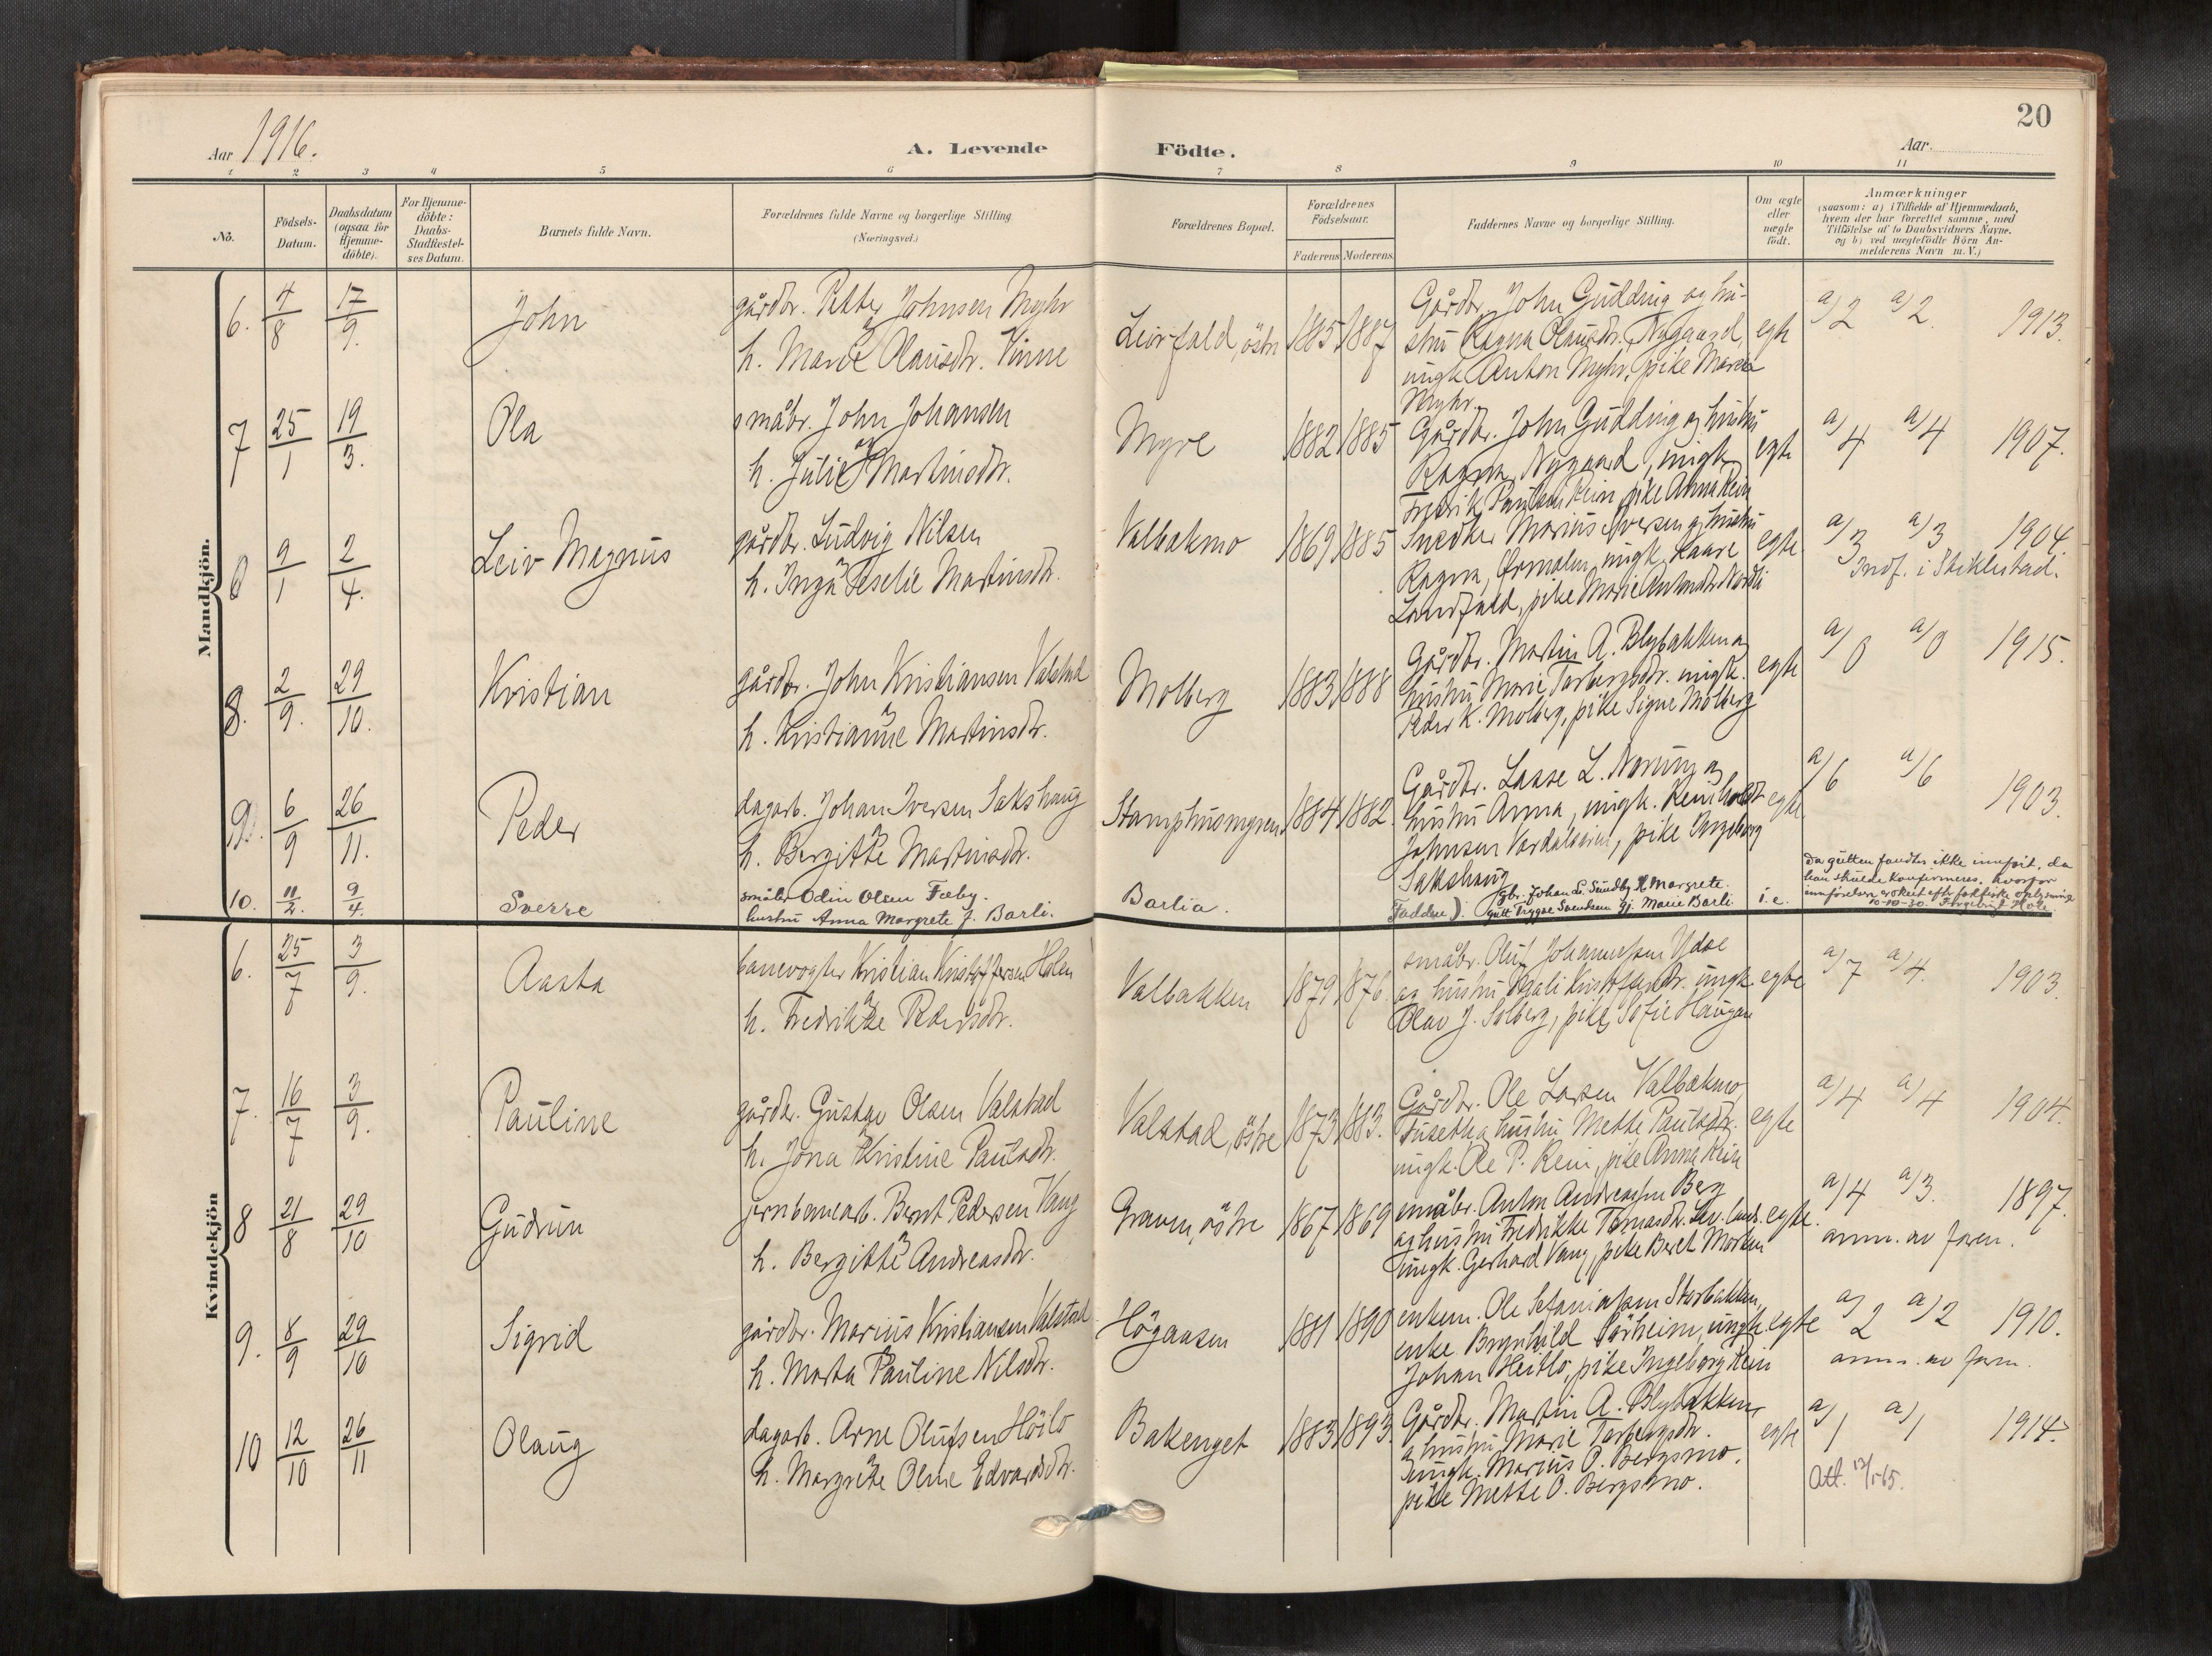 20
Aar 1916.
A. Levende Födte.
Aar.
1 2 3 4 5 6 7 8 9 10 11
No.
Födsels-Datum.
Daabsdatum (ogsaa for Hjemme-döbte).
For Hjemme-döbte: Daabs-Stadfæstel-ses Datum.
Barnets fulde Navn.
Forældrenes fulde Navne og borgerlige Stilling. (Næringsvei.)
Forældrenes Bopæl.
Forældrenes Födselsaar.
Faderens Moderens
Faddernes Navne og borgerlige Stilling.
Om ægte eller uægte födt.
Anmærkninger
(saasom: a) i Tilfælde af Hjemmedaab,
hvem der har forrettet samme, med
Tilföielse af to Daabsvidners Navne.
og b) ved uægtefödte Börn An-
melderens Navn m. V.)
Mandkjön.
6. 4/8 17/9. John
gårdbr. Petter Johnsen Myhr
h. Marie Olausdtr. Vinne
Leirfald, östre 1885 1887
Gårdbr. John Gudding og hu-
stru Ragna Olausdr. Nygaard,
ungk. Anton Myhr, pike Maren
Myhr.
egte
a/2 a/2. 1913.
7 25/1 19/3. Ola
småbr. John Johansen
h. Julie Martinsdtr.
Myre 1882 1885
Gårdbr. John Gudding og hustru
Ragna, Nygaard, ungk.
Fredrik Paulsen Rein, pike Anna Rein
egte
a/4 a/4 1907.
9/1 2/4. Leiv Magnus
gårdbr. Ludvig Nilsen
h. Inga Teselie Martinsdtr.
Valbakmo 1869 1885
Snedker Marius Iversen og hustru
Ragna, Ørmelen, ungk. Kaare
Landfald, pike Marie Antonsdtr. Nordli
egte
a/3 a/3 1904.
Indf. i Stiklestad.
8. 2/9. 29/10. Kristian
gårdbr. John Kristiansen Valstad
h. Kristianne Martinsdtr.
Molberg 1883 1888
Gårdbr. Martin A. Blybakken og
hustru Marie Torbergsdtr. ungk.
Peder K. Molberg, pike Signe Molberg
egte
a/0 a/0 1915.
9. 6/9 26/11. Peder
dagarb. Johan Iversen Sakshaug
h. Bergitte Martinsdtr.
Stamphusmyren 1884 1882.
Gårdbr. Lasse L. Norum og
hustru Anna, ungk. Reinholdt
Johnsen Verdalsøren, pike Ingeborg
Sakshaug
egte.
a/6 a/6 1903.
10. 11/2. 9/4. Sverre
småbr. Odin Olsen Fæby.
hustru Anna Margrete f. Barli.
Barlia.
Faddere). gbr. Johan L. Sundby, H. Margrete.
gutt Trygve Svendsen gj. Marie Barli
i.e.
Da gutten fandtes ikke innført, da
han skulde konfirmeres, hvorfor
innførelsen er skeet efter faktiske oplysninger
10-10-30. Ingebrigt Hole
Kvindekjön
6. 25/7 3/9. Aasta
banevogter Kristian Kristoffersen Holen
h. Fredrikke Pedersdtr.
Valbakken 1879 1876.
småbr. Oluf Johannessen Ydse
og hustru Magali Kristoffersdtr. ungk.
Olav J. Solberg, pike Sofie Haugan
egte
a/7 a/4. 1903.
7. 16/7 3/9. Pauline
gårdbr. Gustav Olsen Valstad
h. Jona Kristine Paulsdtr.
Valstad, östre 1873 1883.
Gårdbr. Ole Larsen Valbakmo,
Tusetho, hustru Mette Paulsdtr.
ungk. Ole P. Rein, pike Anna Rein
egte
a/4 a/4 1904.
8 21/8 29/10 Gudrun
jernbanearb. Bernt Pedersen Vang
h. Bergitte Andreasdtr.
Graven, östre 1867 1869
småbr. Anton Andreassen Berg
og hustru Fredrikke Tomasdtr. Lev. landt.
ungk. Gerhard Vang, pike Beret Morken
egte.
a/4 a/3. 1897.
anm. av faren.
9. 8/9 29/10 Sigrid
gårdbr. Marius Kristiansen Valstad
h. Marta Pauline Nilsdtr.
Högaasen 1881 1890
enkem. Ole Sefaniassen Storbakken,
enke Brynhild Sörheim, ungk.
Johan Heitlo, pike Ingeborg Rein
egte
a/2 a/2 1910.
anm. av faren.
10 12/10 26/11 Olaug
dagarb. Arne Olufsen Höilo
h. Margrete Oline Edvardsdtr.
Bakenget 1883 1893.
Gårdbr. Martin A. Blybakken
og hustru Marie Torbergsdtr.
ungk. Marius O. Bergsmo.
pike Mette O. Bergsmo.
egte
a/1 a/1 1914.
Att. 13/1-65.